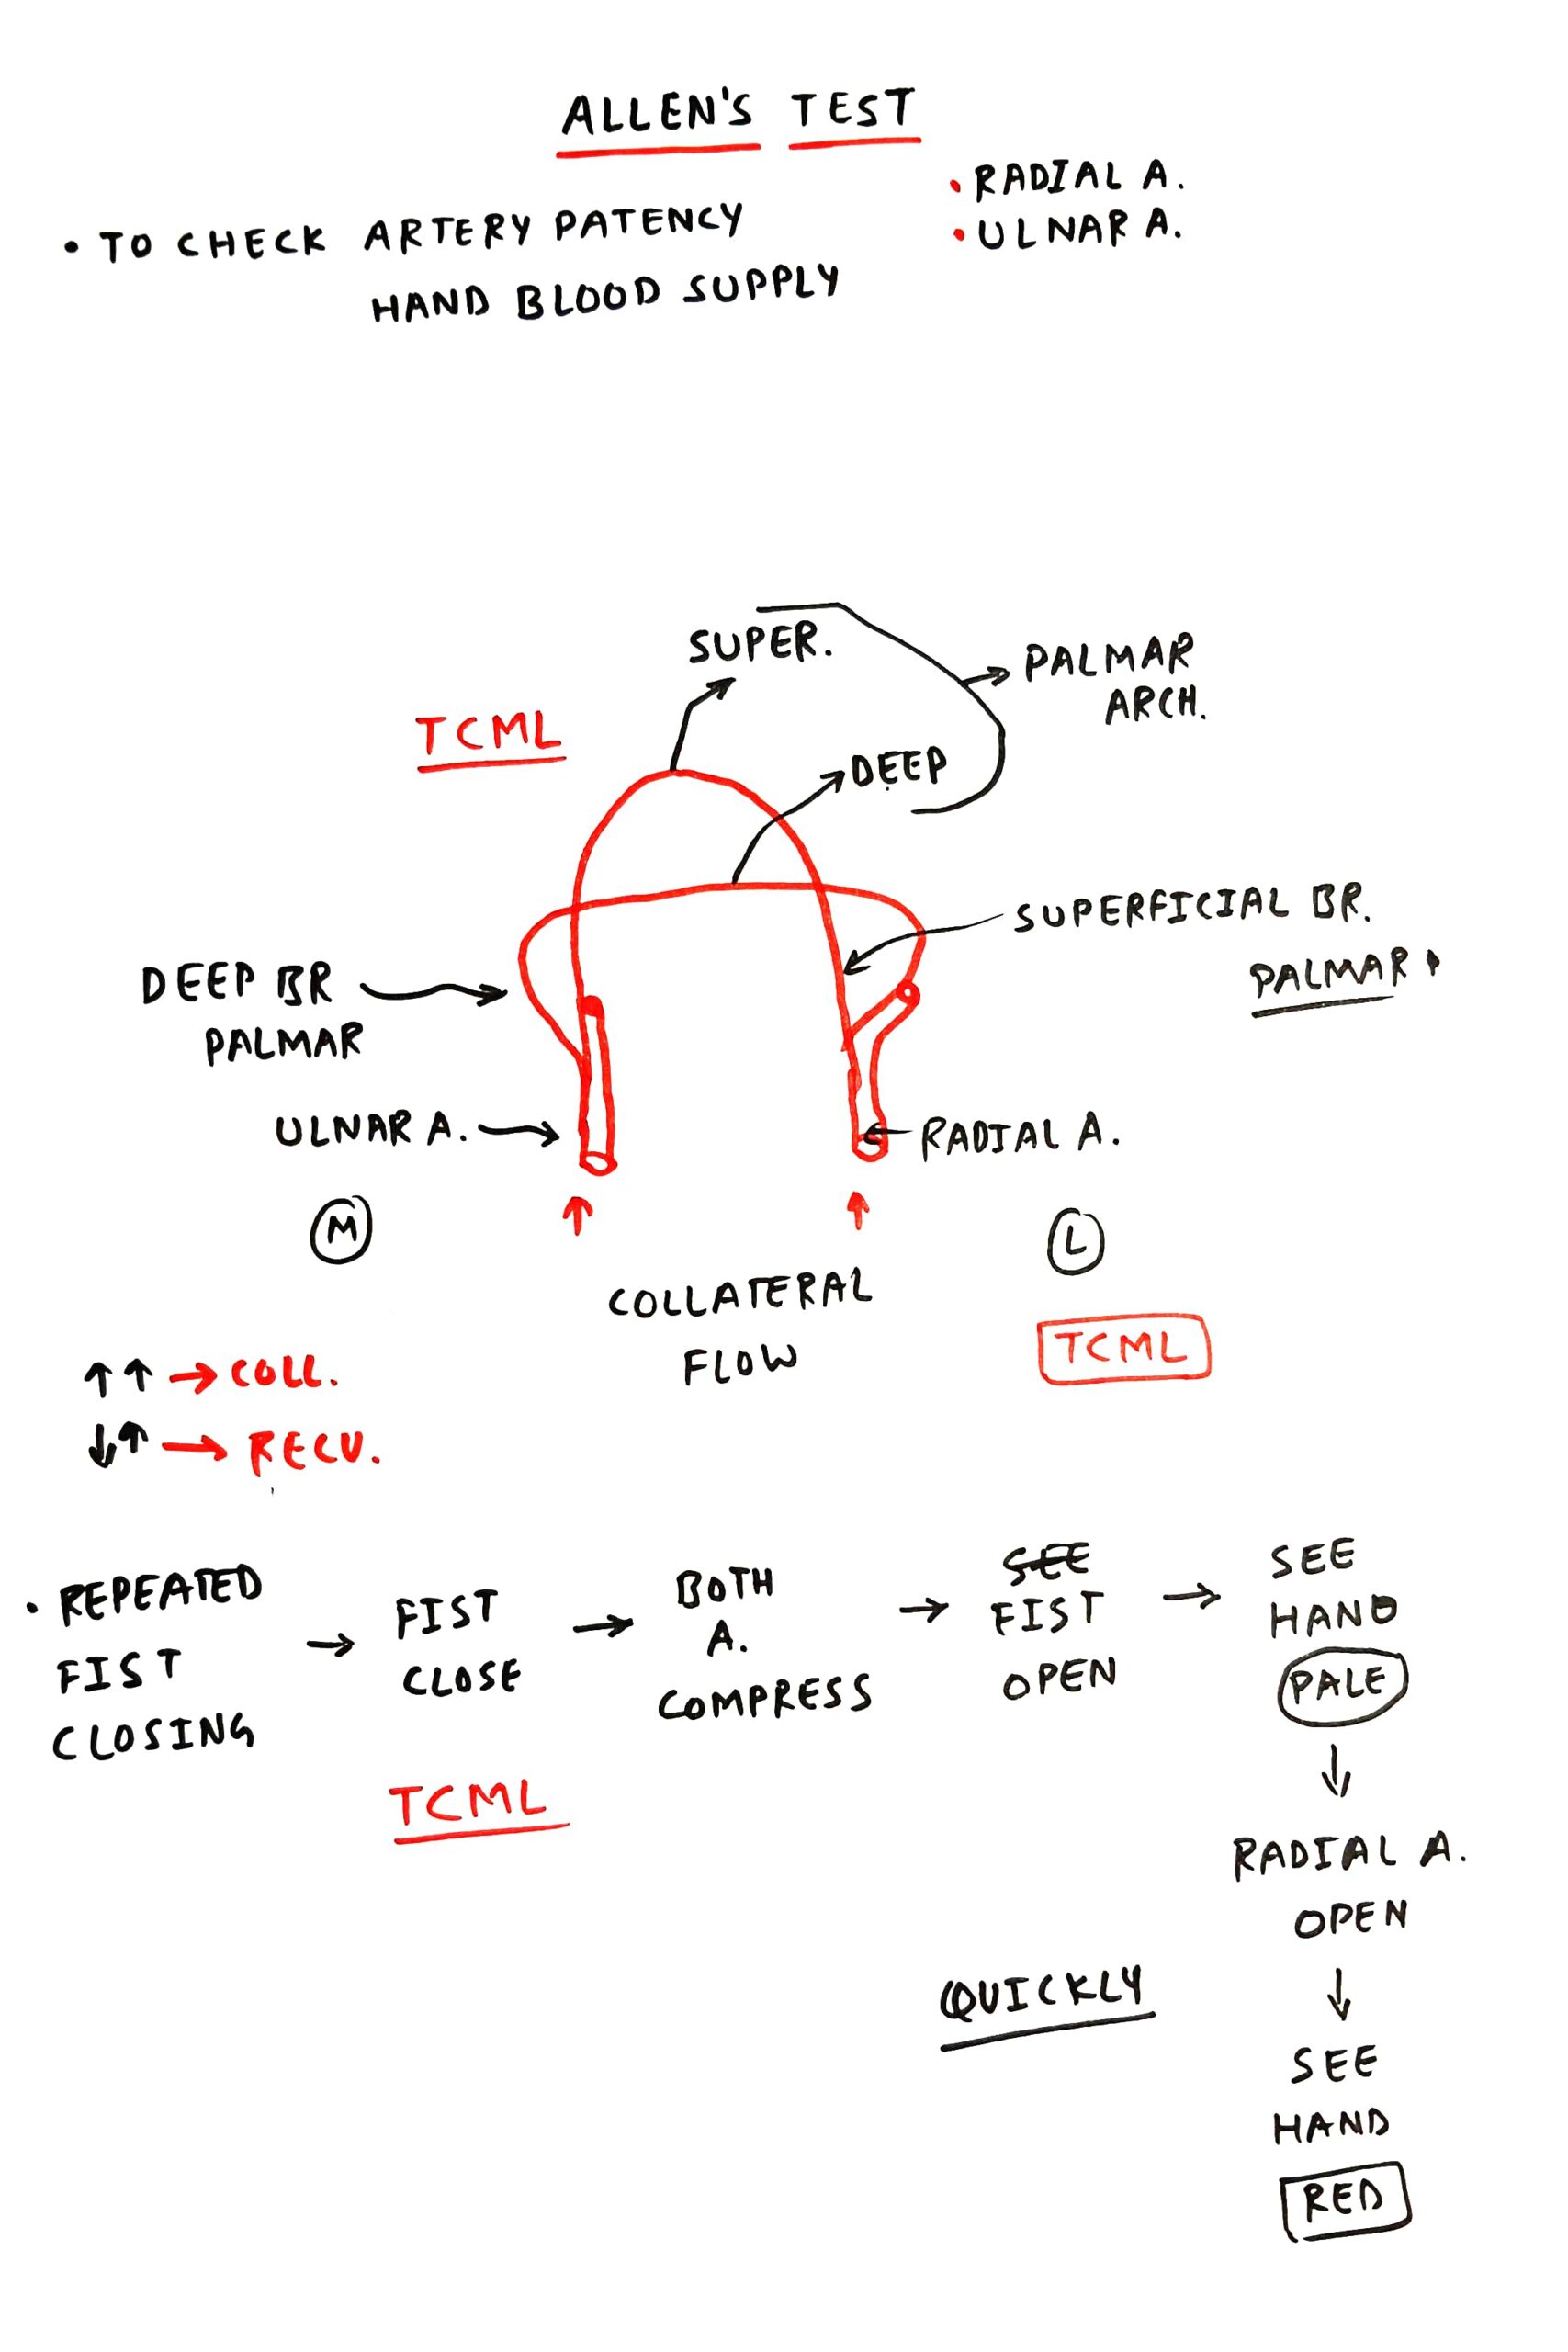 ALLEN'S TEST
• RADIAL A.
• ULNAR A.
• TO CHECK ARTERY PATENCY
HAND BLOOD SUPPLY
SUPER.
PALMAR
ARCH.
TCML
DEEP
SUPERFICIAL BR.
PALMAR
DEEP BR
PALMAR
ULNAR A.
RADIAL A.
M
L
COLLATERAL
FLOW
TCML
↑↑ → COLL.
↓↑ → RECU.
• REPEATED
FIST
CLOSING
→ FIST
CLOSE
→ BOTH
A.
COMPRESS
→ SEE
FIST
OPEN
→ SEE
HAND
PALE
↓
RADIAL A.
OPEN
↓
SEE
HAND
RED
TCML
QUICKLY